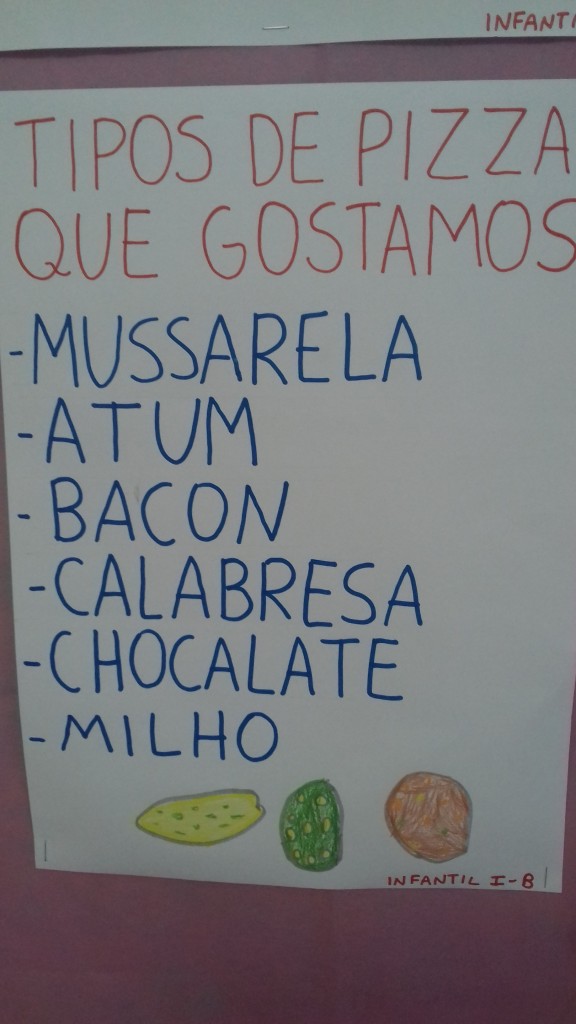 INFANTI
TIPOS DE PIZZA
QUE GOSTAMOS
-MUSSARELA
-ATUM
-BACON
-CALABRESA
-CHOCALATE
-MILHO
INFANTIL I-B